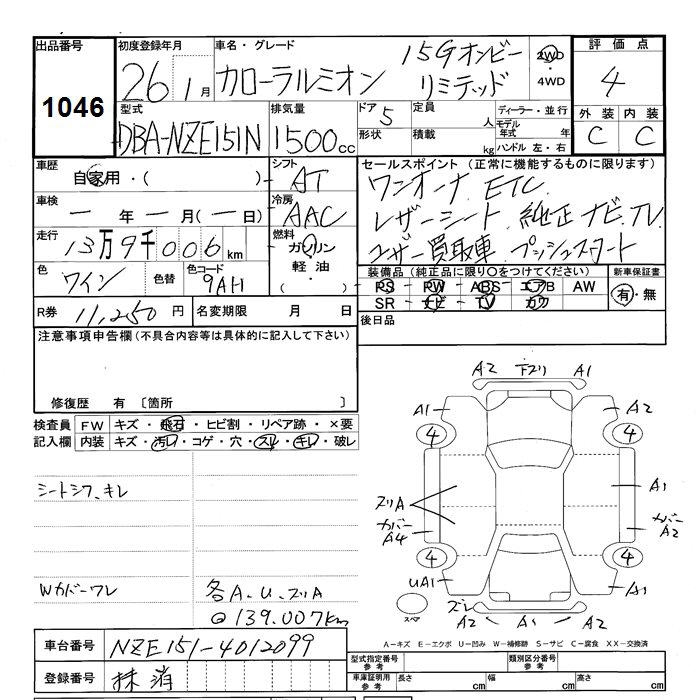 出品番号 初度登録年月 車名・グレード 評価点
1046 26年 1月 カローラルミオン 15Gオンビーリミテッド 2WD ・ 4WD 4
型式 排気量 ドア 5 定員 人 ディーラー・並行 外装 内装
DBA-NZE151N 1500cc 形状 積載 kg モデル年式 年 ハンドル 左・右 C C
車歴 自家用・( ) シフト AT セールスポイント(正常に機能するものに限ります)
車検 一年一月(一日) 冷房 AAC ワンオーナ ETC
レザーシート 純正ナビ.TV
走行 13万9千006km 燃料 ガソリン 軽油・( ) ユーザー買取車 プッシュスタート
色 ワイン 色替 色コード 9AH 装備品(純正品に限り○をつけてください) 新車保証書
PS PW ABS エアB AW 有・無
SR ナビ TV カワ
R券 11,250円 名変期限 月 日 後日品
注意事項申告欄(不具合内容等は具体的に記入して下さい)
修復歴 有 〔箇所 〕
検査員 FW キズ・飛石・ヒビ割・リペア跡・×要
記入欄 内装 キズ・汚レ・コゲ・穴・スレ・キレ・破レ
シートシワ、キレ
Wカバーワレ 各A.U.スリA
@139.007Km
A2 下スリ A1
A1 A2
4 4
スリA A1
カバーA4 カバーA2
4 4
UA1 A1
スペア スレ
A2 A1 A2
A-キズ E-エクボ U-凹み W-補修跡 S-サビ C-腐食 XX-交換済
車台番号 NZE151-4012099 型式指定番号 参考 類別区分番号 参考
登録番号 抹消 車庫証明用 参考 長さ cm 幅 cm 高さ cm